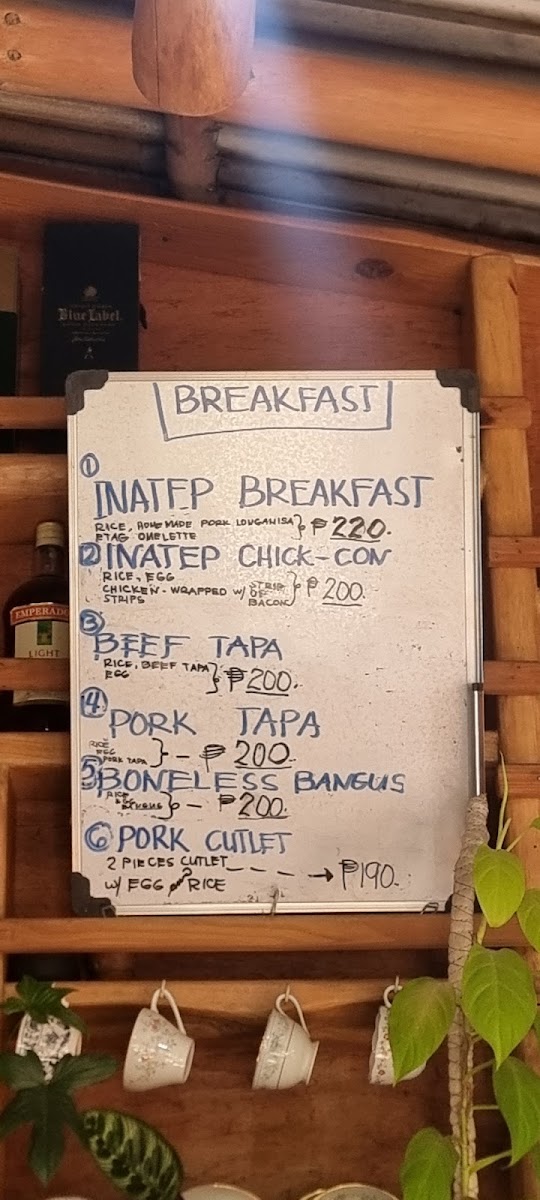 Blue Label
BREAKFAST
1
INATEP BREAKFAST
RICE, HOMEMADE PORK LONGANISA
ETAG OMELETTE
₱220.
2 INATEP CHICK-CON
RICE, EGG
CHICKEN-WRAPPED W/ STRIP OF BACON
STRIPS
₱200.
3
BEEF TAPA
RICE, BEEF TAPA
EGG
₱200.
4
PORK TAPA
RICE
EGG
PORK TAPA
- ₱200.
5 BONELESS BANGUS
RICE
EGG
BANGUS
- ₱200.
6 PORK CUTLET
2 PIECES CUTLET
W/ EGG RICE
₱190.
EMPERADOR
LIGHT